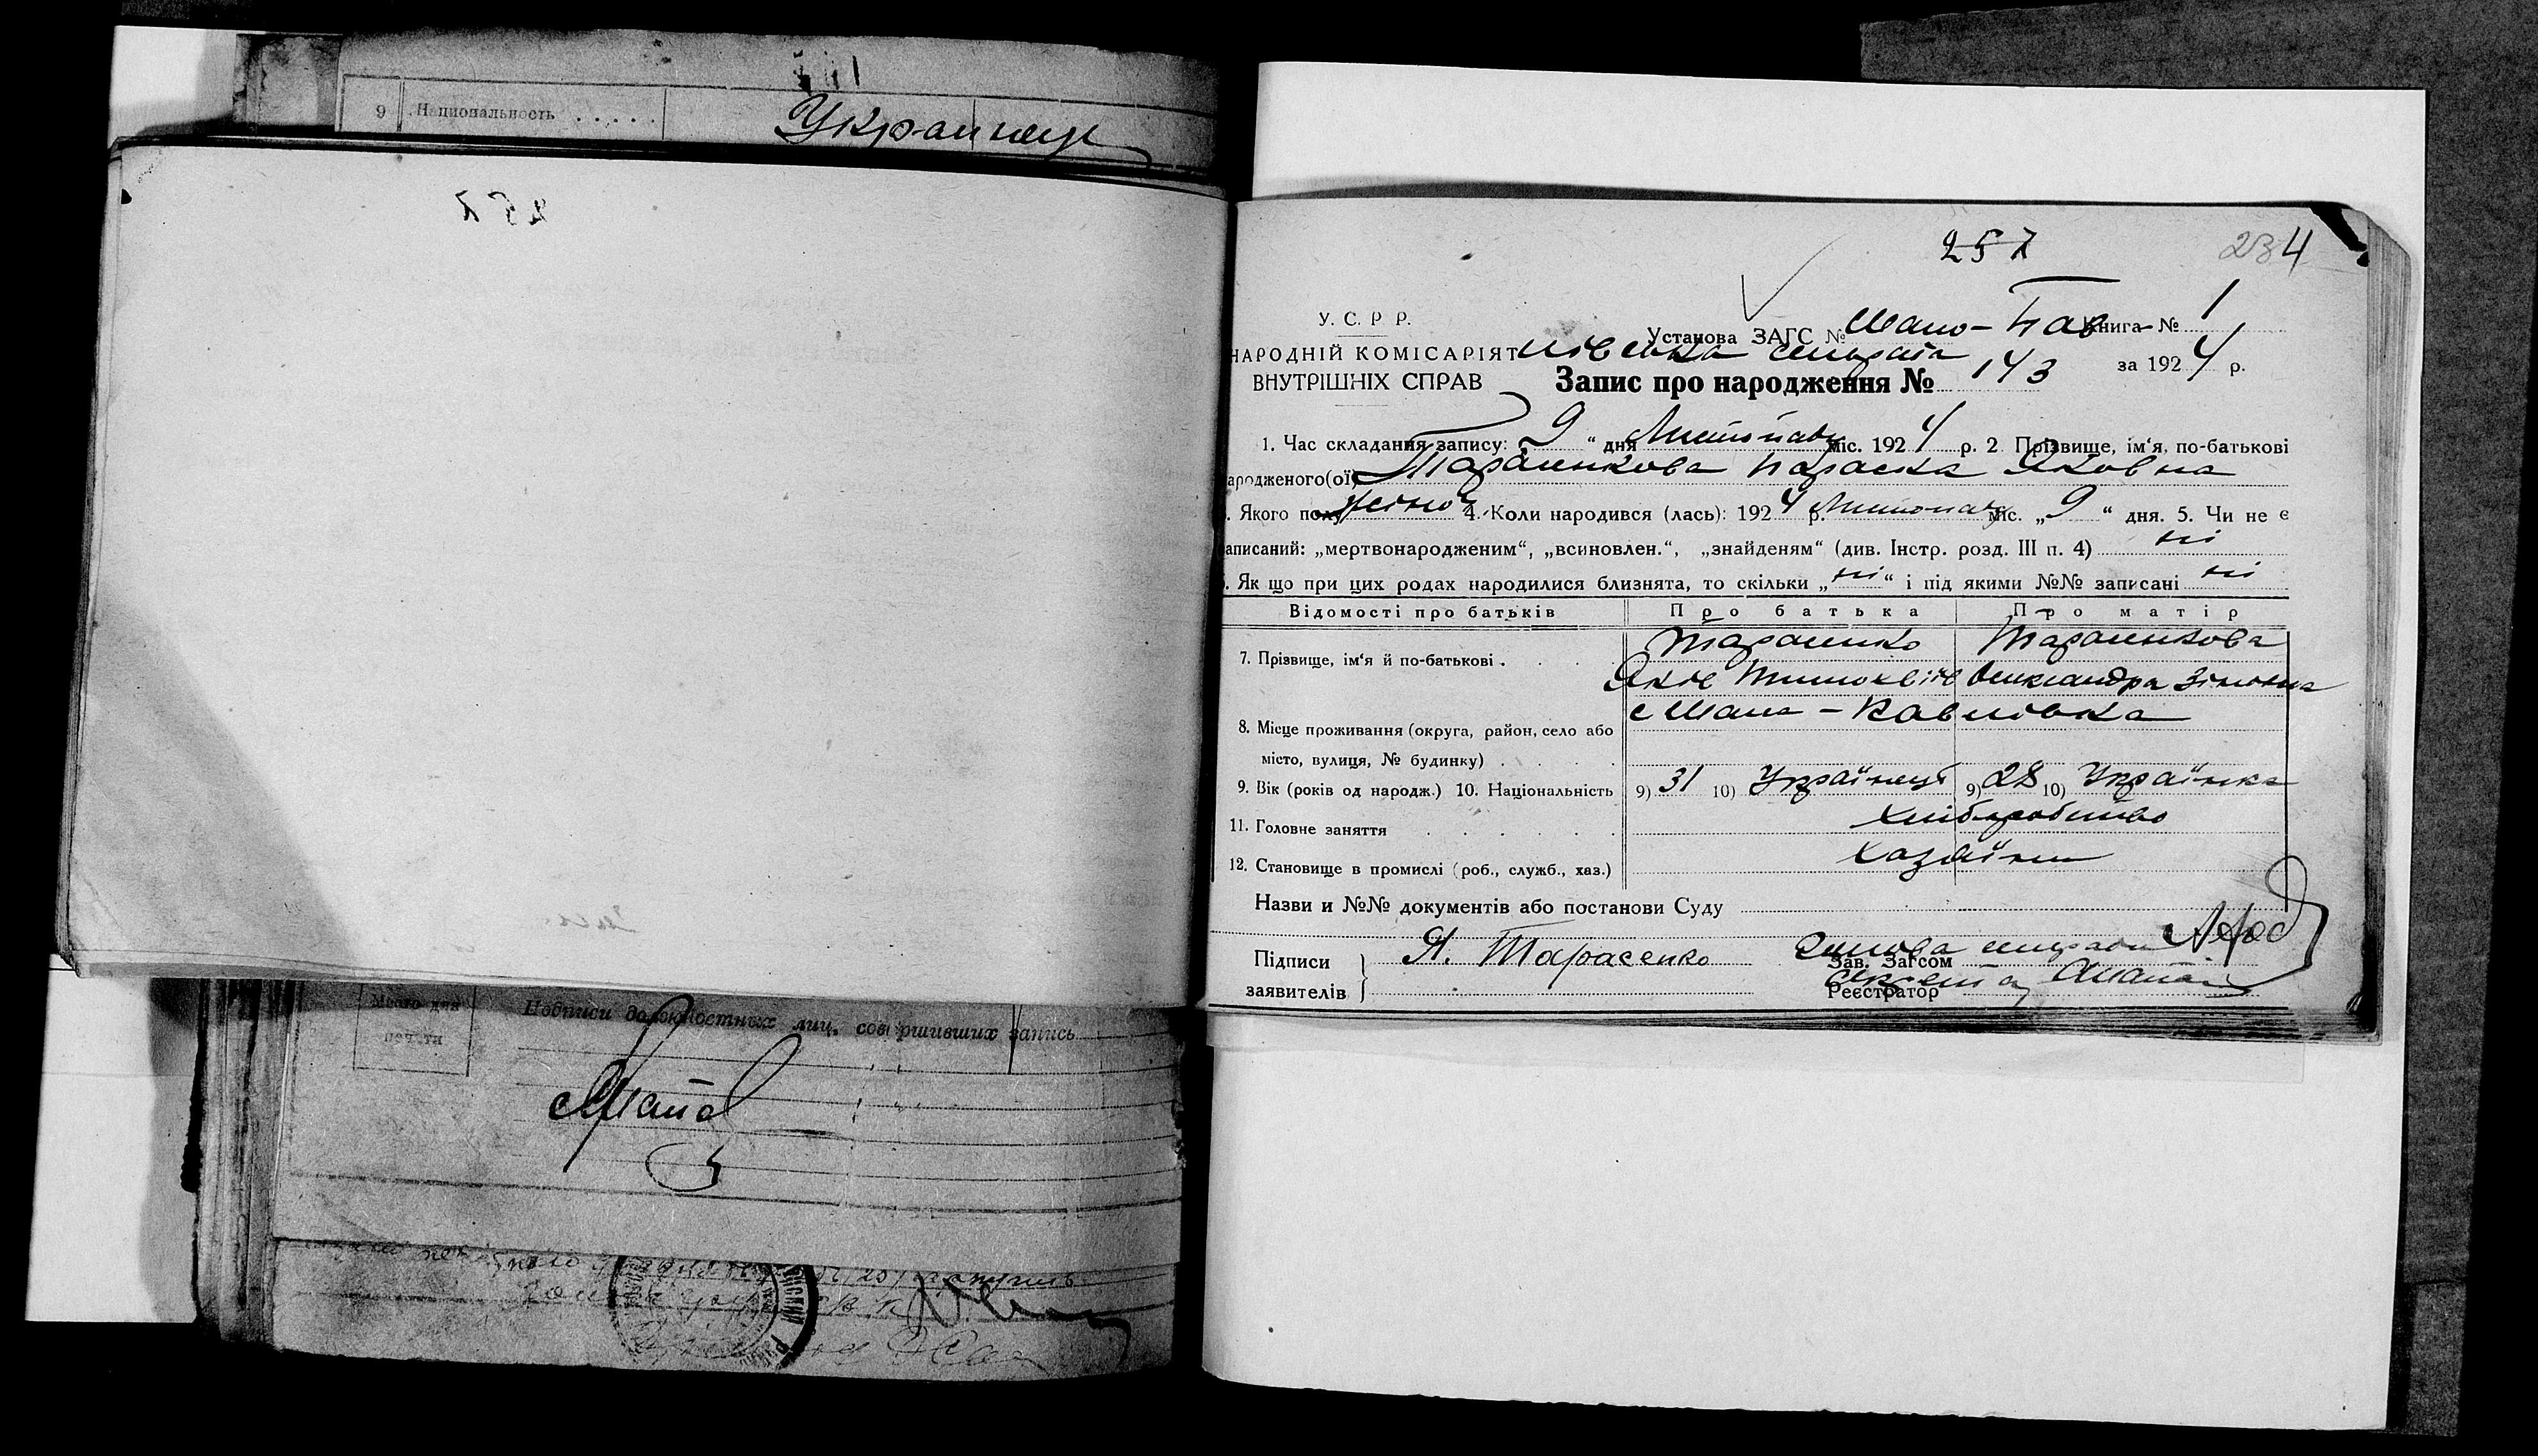 9 Национальность . . . . . Украинец
257
257
234
У. С. Р. Р.
Установа ЗАГС № Мало-Пав Книга № 1
НАРОДНІЙ КОМІСАРІЯТ лівська сельрада
за 1924 р.
ВНУТРІШНІХ СПРАВ
Запис про народження № 143
1. Час складання запису: 9 " дня Листопад міс. 1924 р. 2 Прізвище, ім'я, по-батькові
ародженого(ої) Тарасенкова Параска Яковна
. Якого полу жіноч 4. Коли народився (лась): 1924 р. Листопад міс. „ 9 " дня. 5. Чи не є
аписаний: „мертвонародженим", „всиновлен.", „знайденям" (див. Інстр. розд. III п. 4) ні
. Як що при цих родах народилися близнята, то скільки „ ні " і під якими №№ записані ні
Відомості про батьків Про батька Про матір
7. Прізвище, ім'я й по-батькові . Тарасенко Тарасенкова
Яків Тимохвіїв Олександра Зіновна
с Мала - Павлівка
8. Місце проживання (округа, район, село або
місто, вулиця, № будинку) .
9. Вік (років од народж.) 10. Національність 9) 31 10) Українець 9) 28 10) Українка
11. Головне заняття Хліборобство
12. Становище в промислі (роб., служб., хаз.) Хазаїни
Назви и №№ документів або постанови Суду
Підписи
заявителів
Я. Тарасенко
Голова сельради
Зав. Загсом
Секретар
Реєстратор
Место для
печати
Подписи должностных лиц, совершивших запись